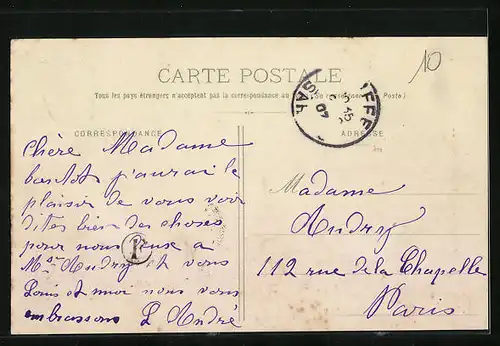 10
CARTE POSTALE
Tous les pays étrangers n'acceptent pas la correspondance au
Poste)
CORRESPONDANCE
ADRESSE
Chère Madame
bientôt j'aurai le
plaisir de vous voir
dites bien des choses
pour nous
a
Mr Audry et vous
Louis et moi nous vous
embrassons L André
Madame
Audry
112 rue de la Chapelle
Paris